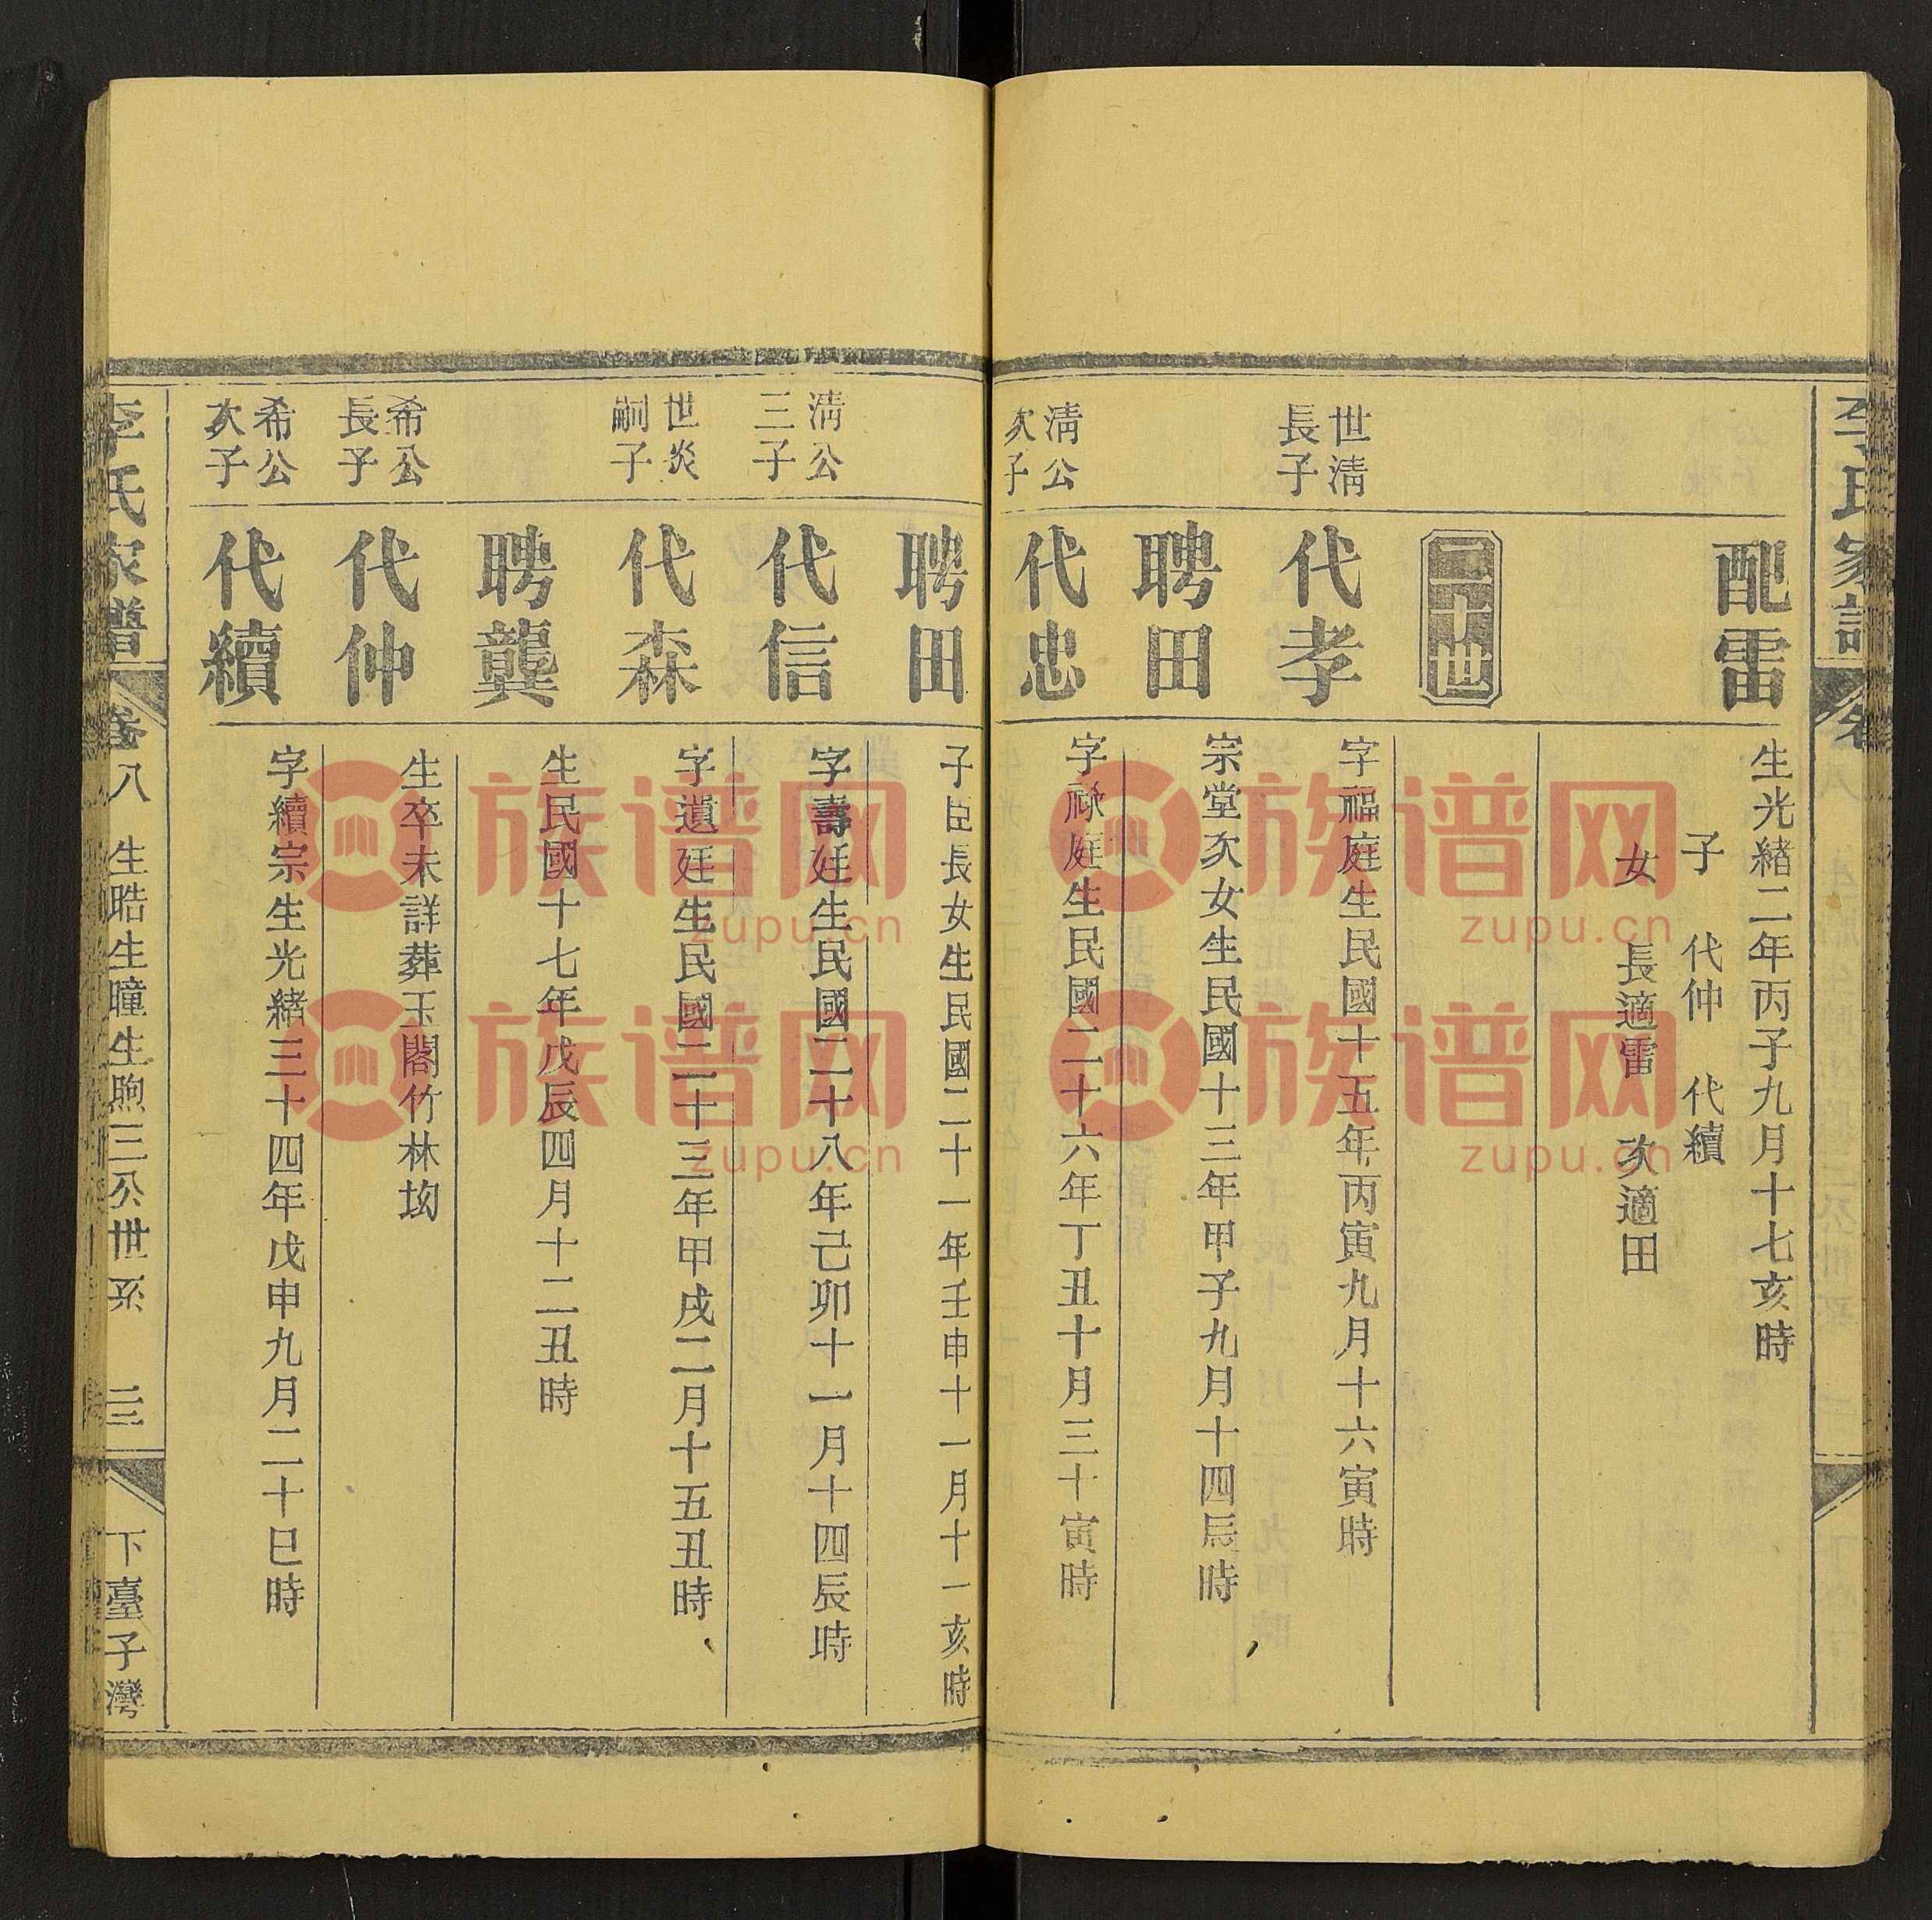 李氏家譜
配雷
生光緒二年丙子九月十七亥時
子 代仲 代續
女 長適雷 次適田
二十世
世淸長子
代孝
字福庭生民國十五年丙寅九月十六寅時
聘田
宗堂次女生民國十三年甲子九月十四辰時
淸公次子
代忠
字祿庭生民國二十六年丁丑十月三十寅時
聘田
子臣長女生民國二十一年壬申十一月十一亥時
淸公三子
代信
字壽廷生民國二十八年己卯十一月十四辰時
世炎嗣子
代森
字遺廷生民國二十三年甲戌二月十五丑時
聘龔
生民國十七年戊辰四月十二丑時
希公長子
代仲
生卒未詳葬玉閣竹林坳
希公次子
代續
字續宗生光緒三十四年戊申九月二十巳時
李氏家譜
卷八 生晧生曈生煦三公世系 三 下臺子灣
族谱网
zupu.cn
族谱网
zupu.cn
族谱网
zupu.cn
族谱网
zupu.cn